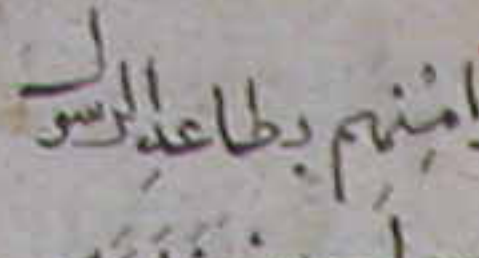 امنهم بطاعة الرسول